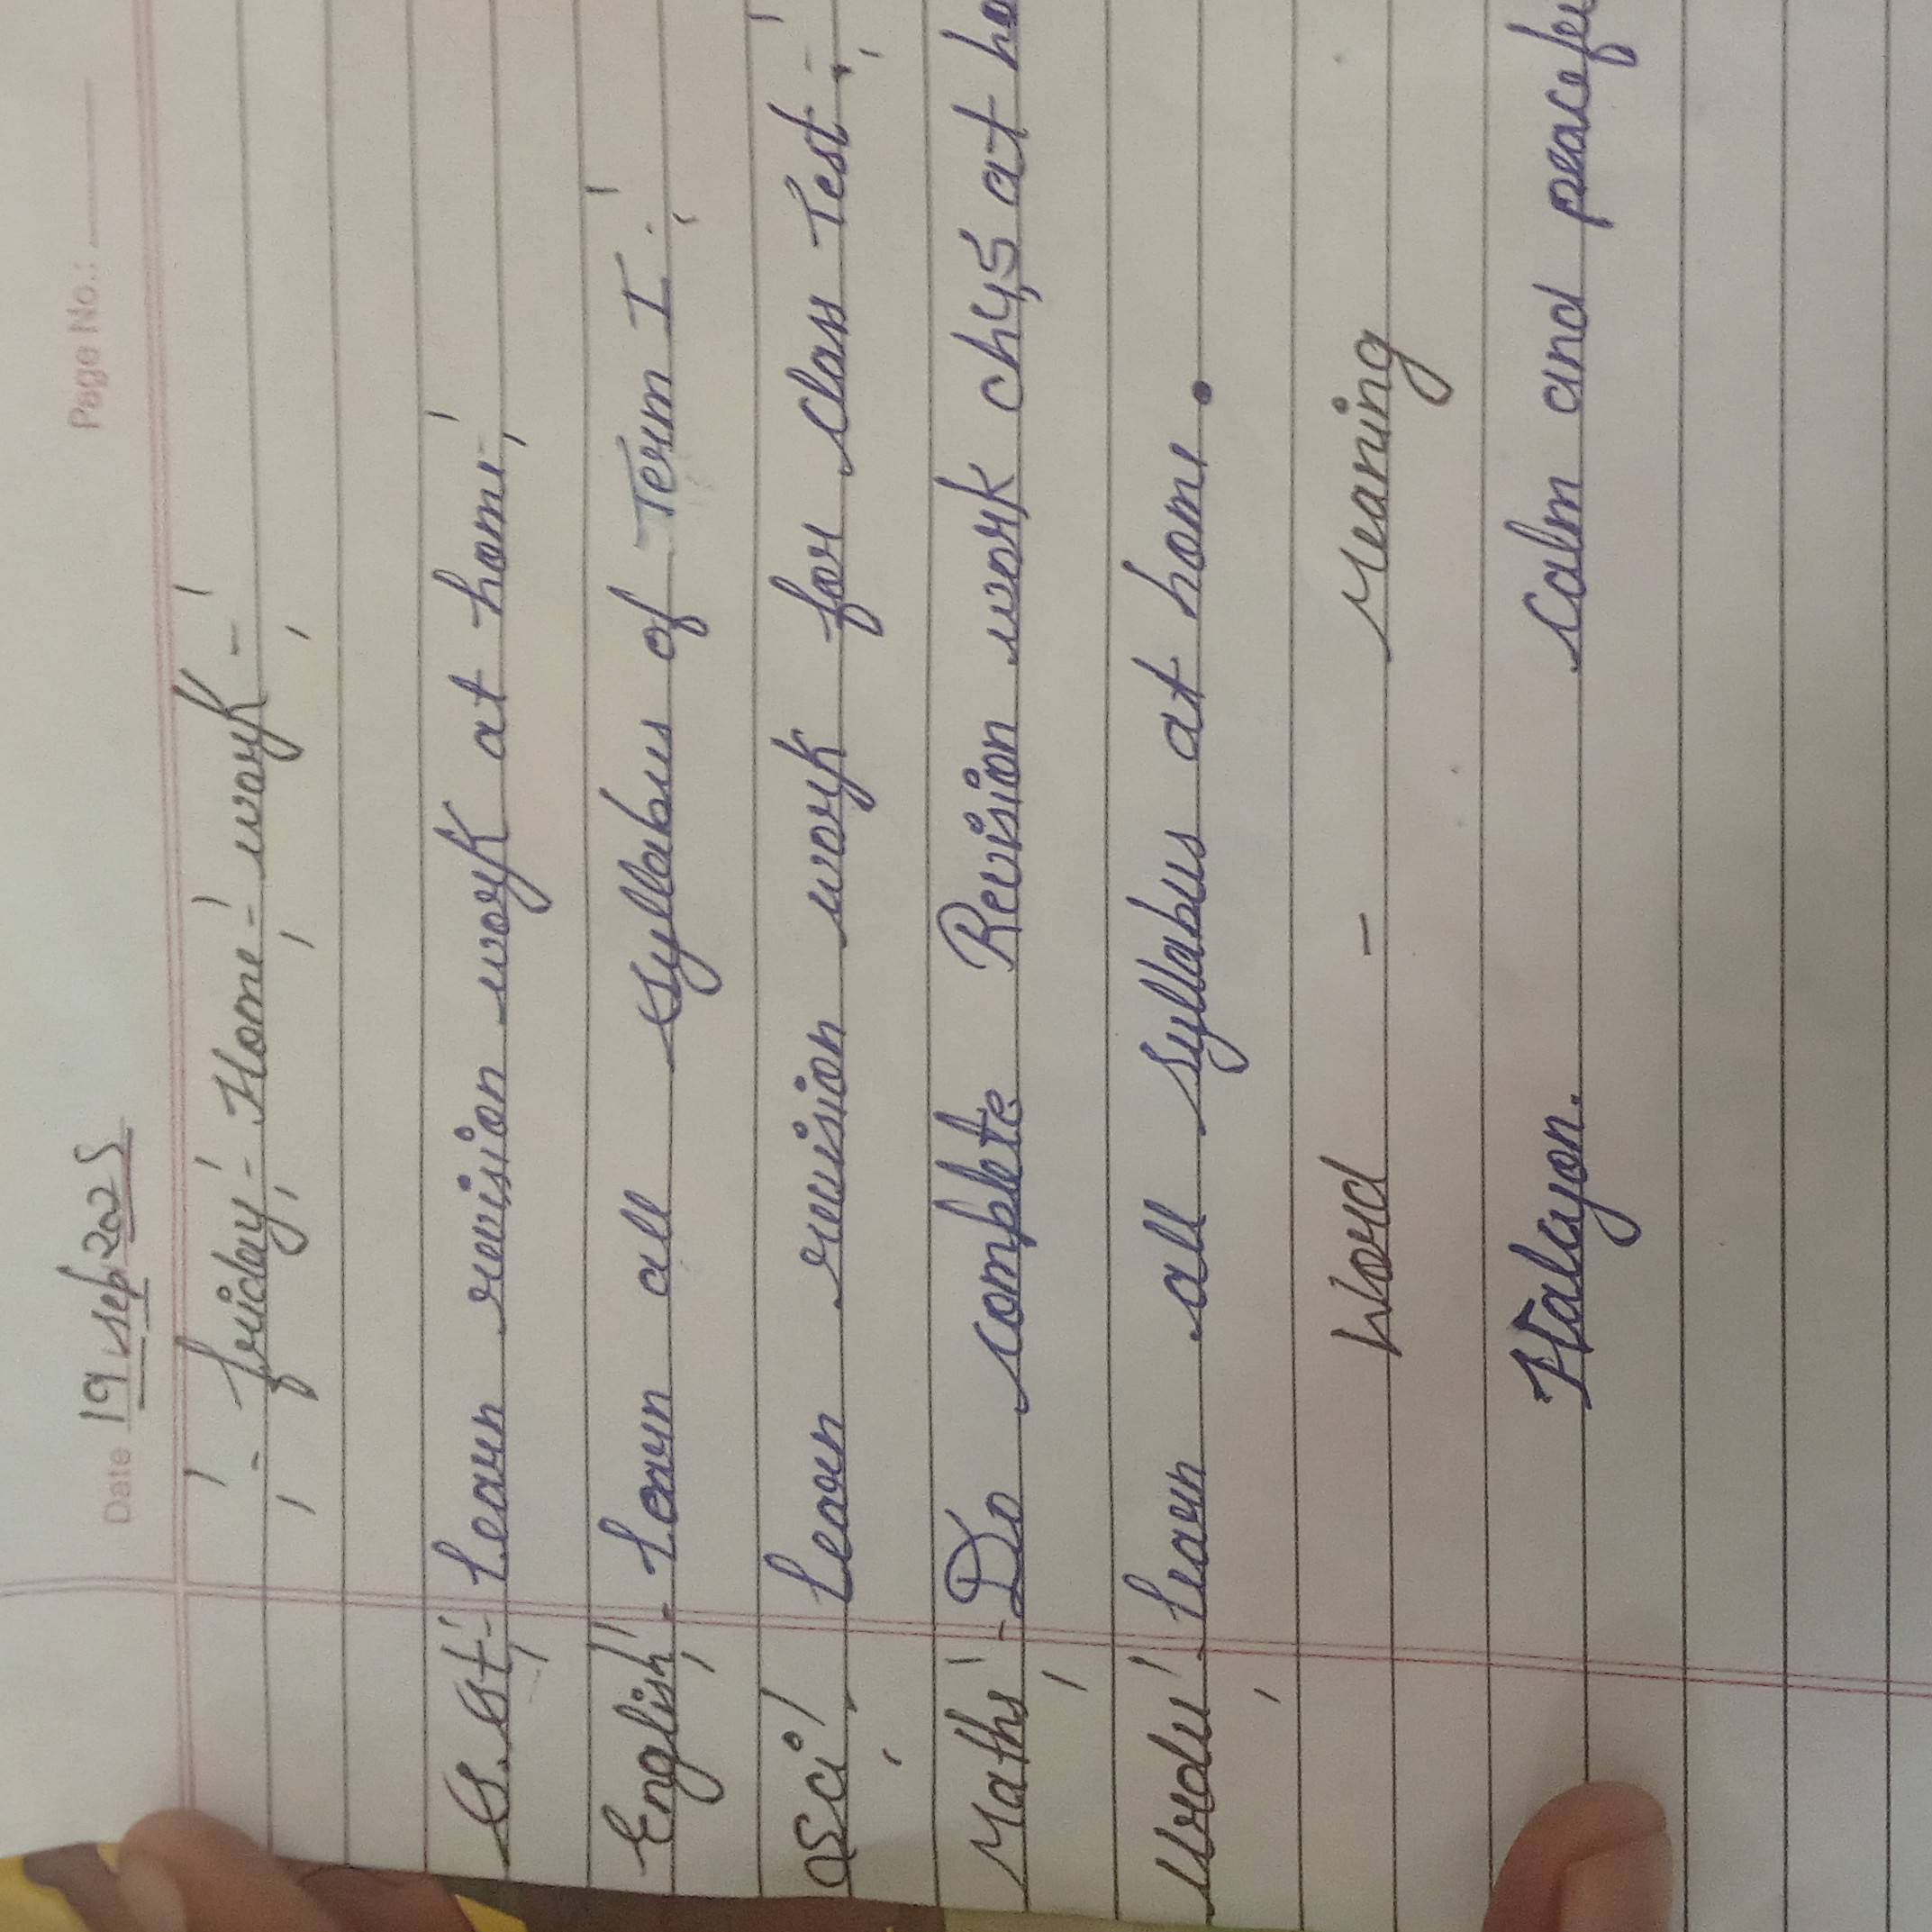 Page No.:
Date 19 sep 2025
- friday - Home - work -
S. St - Learn revision work at home
English - Learn all syllabus of Term I.
Sci Learn revision work for class Test.
Maths - Do complete Revision work ch4,5 at ho
Urdu - Learn all syllabus at home.
Word - Meaning
Halcyon. calm and peacefu